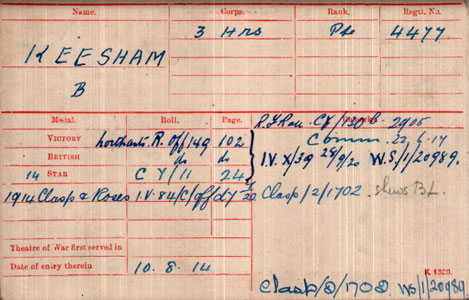 Name. Corps. Rank. Regtl. No.
KEESHAM 3 Hrs Pte 4477
B
Medal. Roll. Page.
VICTORY Northants. R. Off/149 102
BRITISH do do
14 STAR CY/11 24
1914 Clasp & Roses IV. 84/C/
Comm. 22.6.17
I.V. X/39 28/9/20 W.S./1/20989.
Clasp/2/1702. shews B.L.
Theatre of War first served in
Date of entry therein 10.8.14
K 1380.
Clasp/2/1702 WS/1/20989